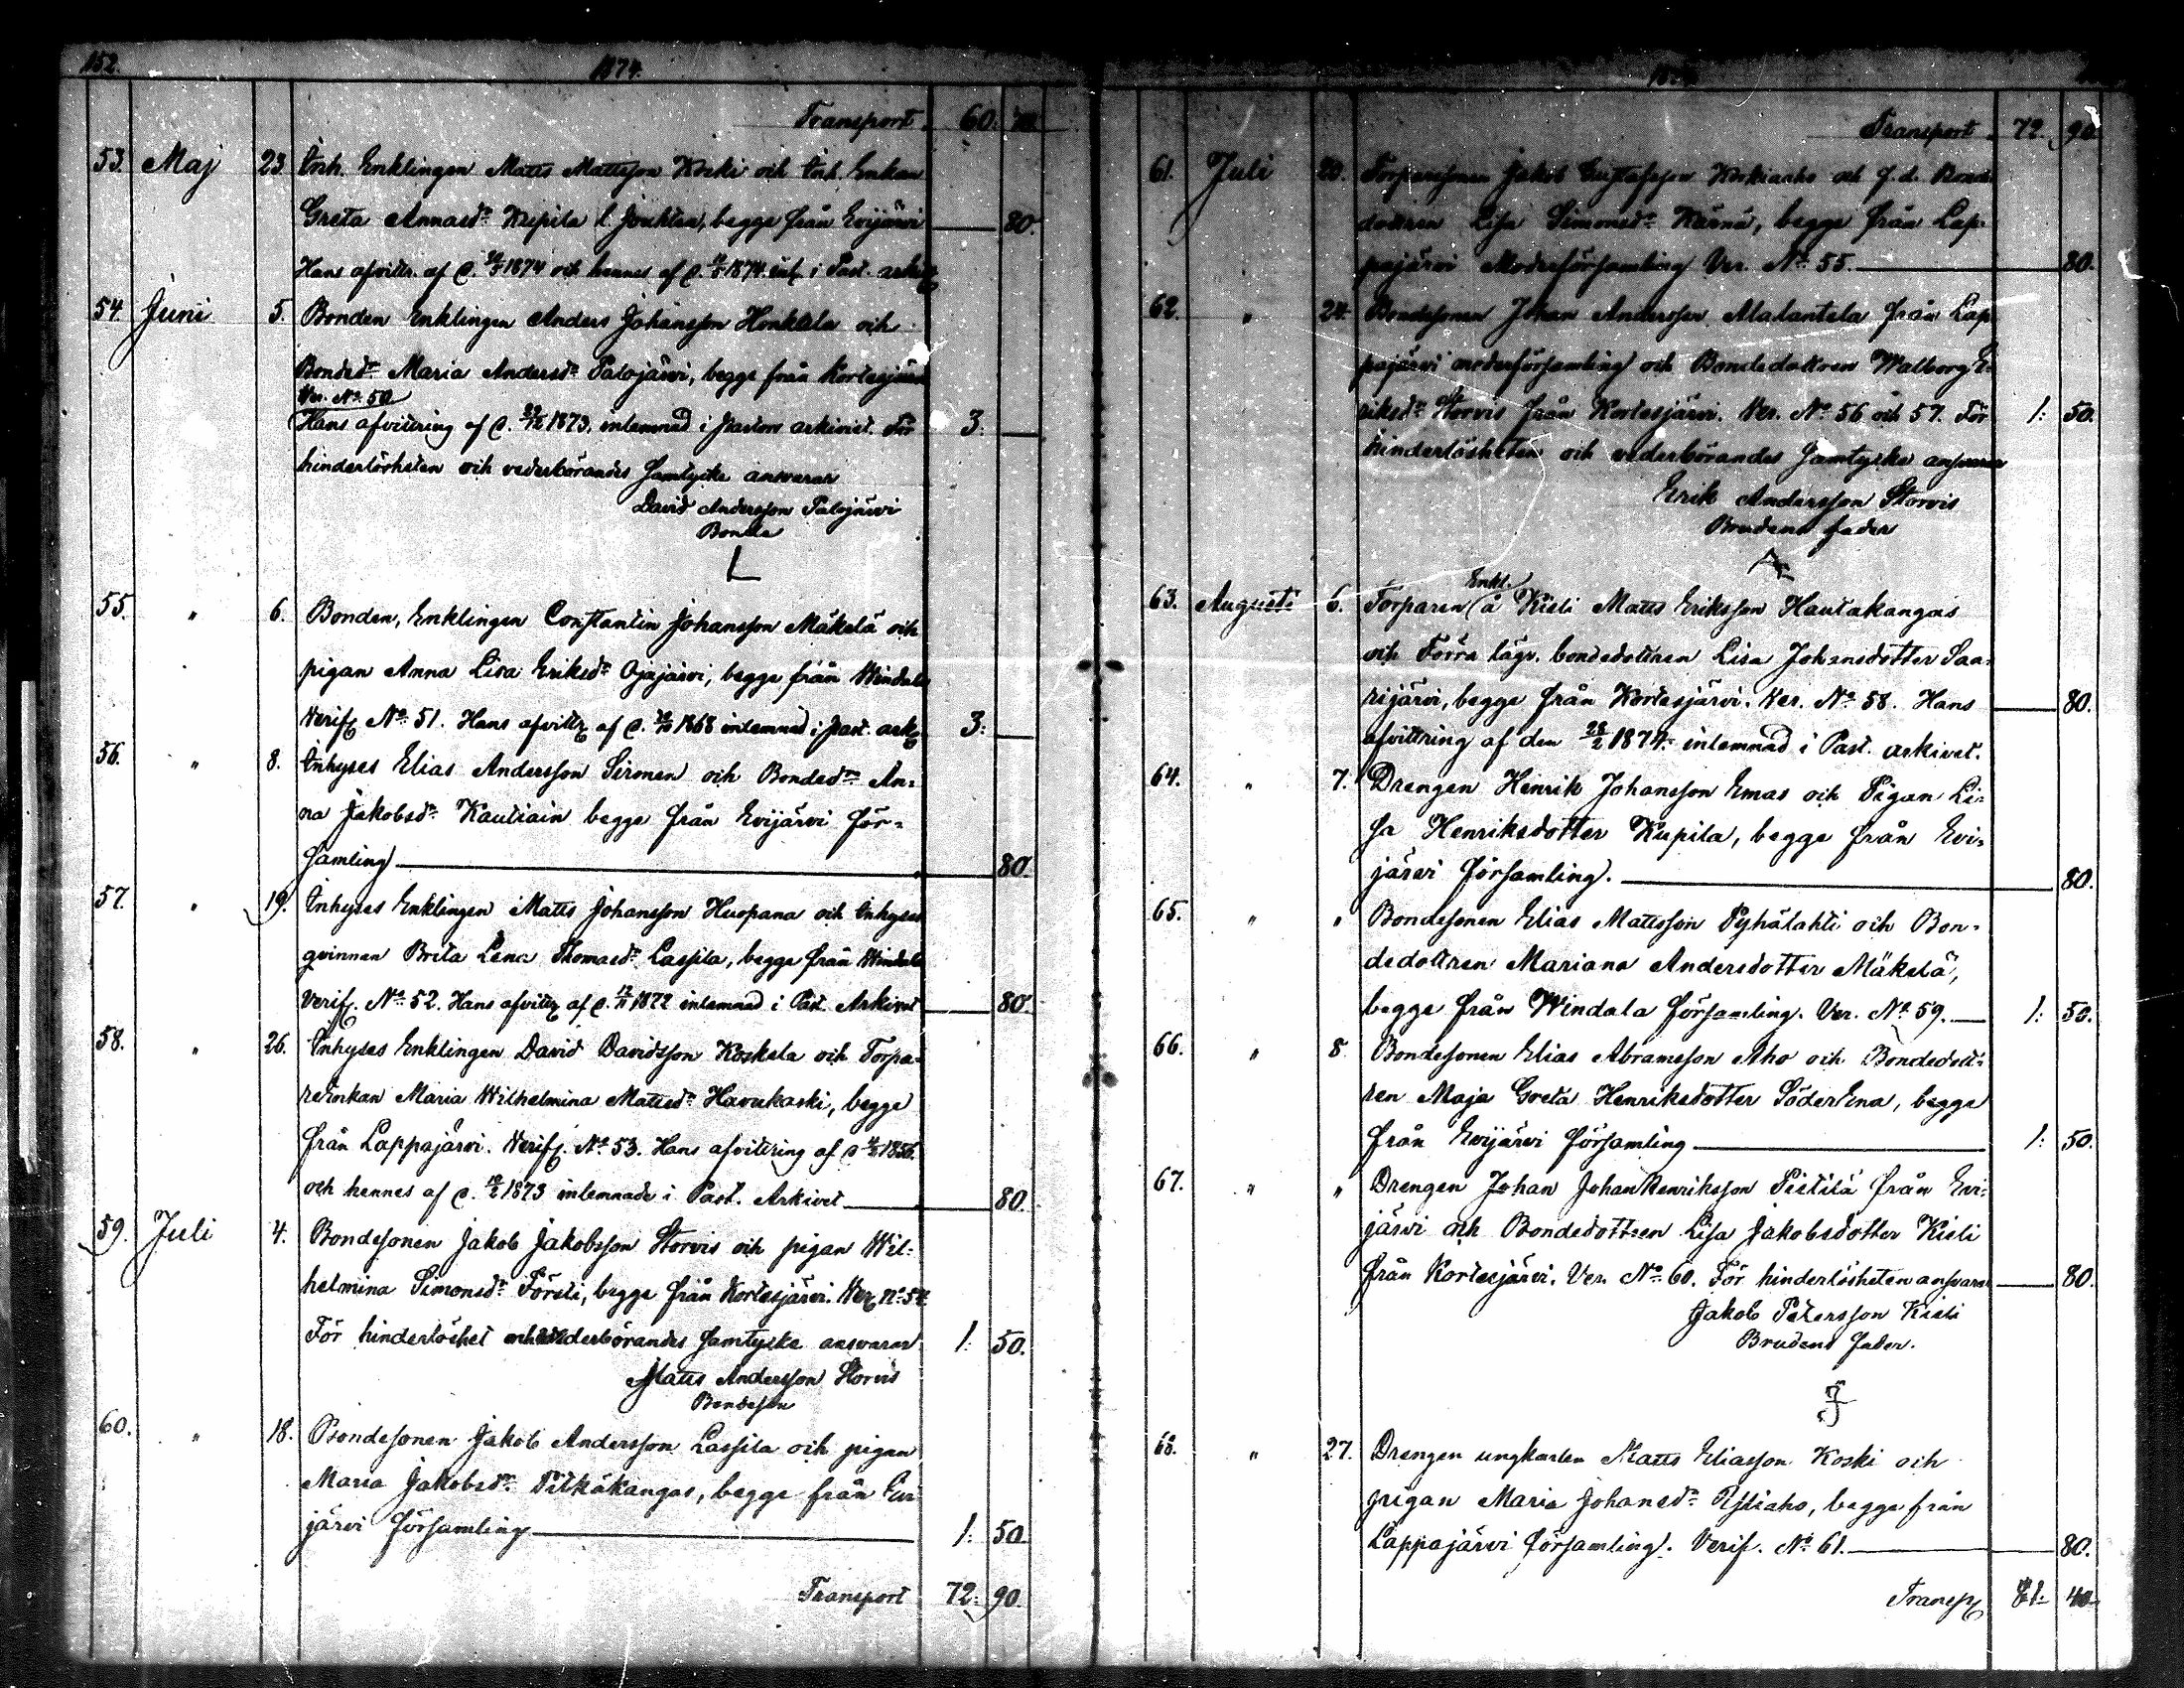 152.
1874.
Transport 60.
53. Maj 23. Inh. Enklingen Matts Mattsson Koski och Inh. Enkan
Greta Annasdr Kupila l. Jouktan, begge från Evijärvi 80.
Hans afvittr. af d. 1874 och hennes af d. 1874. inl. i Past. arkiv
54. Juni 5. Bonden Enklingen Anders Johansson Honkala och
Bondedr Maria Andersdr Palojärvi, begge från Kortesjärvi
Ver. No 50
Hans afvittring af d. 1873. inlemnad i pastors arkivet. För 3: —
hinderlösheten och vederbörandes samtycke ansvarar
David Andersson Palojärvi
Bonde
L
55. " 6. Bonden, Enklingen Constantin Johansson Mäkelä och
pigan Anna Lisa Eriksdr Ojajärvi, begge från Windala
Verif. No 51. Hans afvittr af d. 1868 inlemnad i past. ark. 3: —
56. " 8. Inhyses Elias Andersson Sironen och Bondedr An-
na Jakobsdr Kautiain begge från Evijärvi för-
samling 80.
57. " 19. Inhyses Enklingen Matts Johansson Huopana och Inhyses
qvinnan Brita Lena Thomasdr Lassila, begge från Windala
Verif. No 52. Hans afvittr af d. 12/11 1872 inlemnad i Past. Arkivet 80.
58. " 26. Inhyses Enklingen David Davidsson Koskela och Torpa-
reenkan Maria Wilhelmina Mattsdr Havukoski, begge
från Lappajärvi. Verif. No 53. Hans afvittring af d 1856.
och hennes af d. 1873 inlemnade i Past. Arkivet 80.
59. Juli 4. Bondesonen Jakob Jakobsson Storvis och pigan Wil-
helmina Simonsdr Försti, begge från Kortesjärvi. Ver. No 54.
För hinderlöshet och vederbörandes samtycke ansvarar 1. 50.
Matts Andersson Storvis
Bondeson
60. " 18. Bondesonen Jakob Andersson Lassila och pigan
Maria Jakobsdr Pitkäkangas, begge från Evi-
järvi församling 1. 50.
Transport 72: 90.
Transport 72. 90.
61. Juli 20. Torparesonen Jakob Gustafsson Korkiaaho och f. d. Bonde-
dottren Lisa Simonsdr Kärnä, begge från Lap-
pajärvi Moderförsamling Ver. No 55. 80.
62. " 24. Bondesonen Johan Andersson Alatantela från Lap-
pajärvi moderförsamling och Bondedottren Walborg E-
riksdr Storvis från Kortesjärvi. Ver. No 56 och 57. För 1: 50.
hinderlösheten och vederbörandes samtycke ansvarar
Erik Andersson Storvis
Brudens fader
63. Augusti 6. Torparen (Enkl. å Kisli Matts Eriksson Hautakangas
och Förra lägr. bondedottren Lisa Johansdotter Saa-
rijärvi, begge från Kortesjärvi. Ver. No 58. Hans 80.
afvittring af den 28/2 1874. inlemnad i Past. arkivet.
64. " 7. Drengen Henrik Johansson Emas och Pigan Li-
sa Henriksdotter Kupila, begge från Evi-
järvi församling. 80.
65. " " Bondesonen Elias Mattsson Pyhälahti och Bon-
dedottren Mariana Andersdotter Mäkelä,
begge från Windala församling. Ver. No 59. 1: 50.
66. " 8. Bondesonen Elias Abramsson Aho och Bondedott-
ren Maja Greta Henriksdotter SöderEna, begge
från Evijärvi församling 1: 50.
67. " " Drengen Johan Johan Henriksson Pietilä från Evi-
järvi och Bondedottren Lisa Jakobsdotter Kisli
från Kortesjärvi. Ver. No 60. För hinderlösheten ansvarar 80.
Jakob Petersson Kisli
Brudens fader.
68. " 27. Drengen ungkarlen Matts Eliasson Koski och
pigan Maria Johansdr Ylliaho, begge från
Lappajärvi församling. Verif. No 61. 80.
Transp. 81: 40.